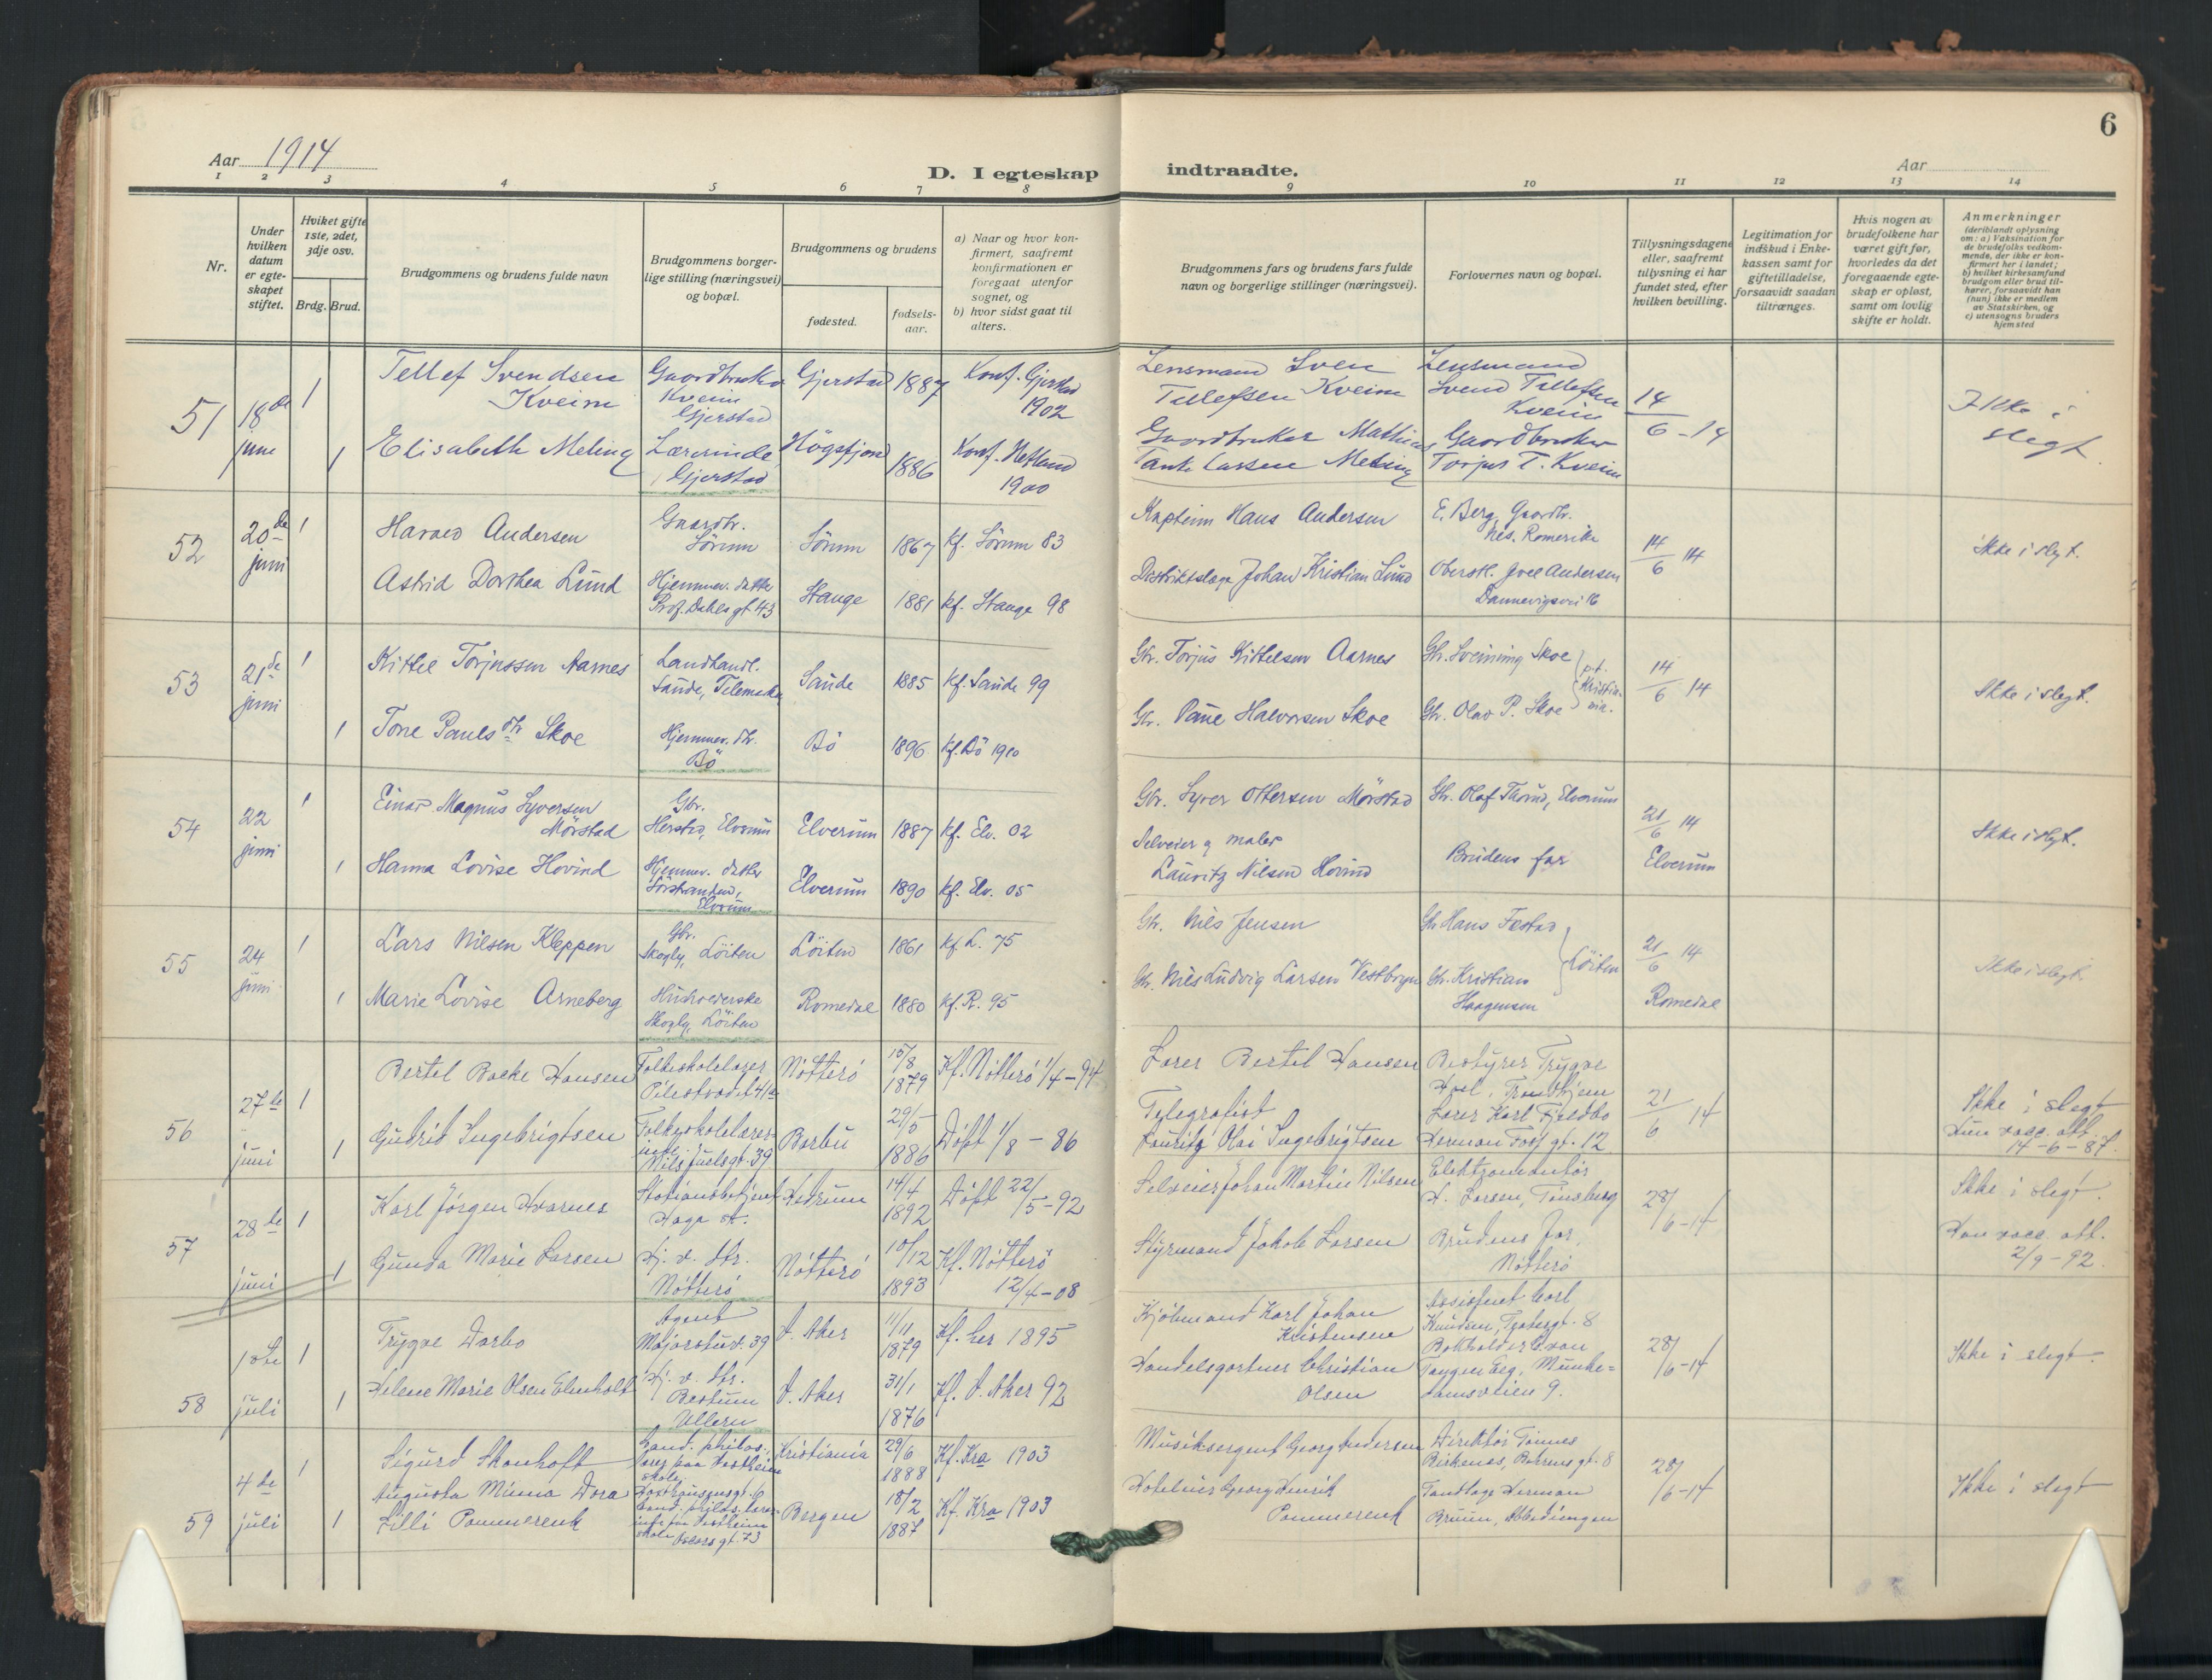 6
Aar 1914
D. I egteskap indtraadte.
Aar
1 2 3 4 5 6 7 8 9 10 11 12 13 14
Nr.
Under hvilken datum er egteskapet stiftet.
Hviket gifte 1ste, 2det, 3dje osv.
Brdg. Brud.
Brudgommens og brudens fulde navn
Brudgommens borgerlige stilling (næringsvei) og bopæl.
Brudgommens og brudens
fødested.
fødselsaar.
a) Naar og hvor konfirmert, saafremt konfirmationen er foregaat utenfor sognet, og
b) hvor sidst gaat til alters.
Brudgommens fars og brudens fars fulde navn og borgerlige stillinger (næringsvei).
Forlovernes navn og bopæl.
Tillysningsdagene eller, saafremt tillysning ei har fundet sted, efter hvilken bevilling.
Legitimation for indskud i Enkekassen samt for giftetilladelse, forsaavidt saadan tiltrænges.
Hvis nogen av brudefolkene har været gift før, hvorledes da det foregaaende egteskap er opløst, samt om lovlig skifte er holdt.
Anmerkninger (deriblandt oplysning om: a) Vaksination for de brudefolks vedkommende, der ikke er konfirmert her i landet; b) hvilket kirkesamfund brudgom eller brud tilhører, forsaavidt han (hun) ikke er medlem av Statskirken, og c) utensogns bruders hjemsted
51 18de juni
1 Tellef Svendsen Kveim Gaardbruker Kveim Gjerstad Gjerstad 1887 Konf. Gjerstad 1902
Lensmand Sven Tellefsen Kveim Lensmand Svend Tellefsen Kveim
14/6 - 14 Ikke i slegt
1 Elisabeth Meling Lærerinde Gjerstad Högsfjord 1886 Konf. Hetland 1900
Gaardbruker Mathias Tank Larsen Meling Gaardbruker Torjus T. Kveim
52 20de juni
1 Harald Andersen Gaardbr. Sörum Sörum 1867 Kf. Sörum 83
Kaptein Hans Andersen E. Berg, Gaardbr. Nes. Romerike
14/6 14 Ikke i slegt.
Astrid Dorthea Lund Hjemmev. datter Prof. Dahls gt 43 Stange 1881 kf. Stange 98
Distriktslæge Johan Kristian Lund Oberstl. Joel Andersen Dannevigsvei 16
53 21de juni
1 Kittel Torjussen Aarnes Landhandl. Saude, Telemarken Saude 1885 Kf. Saude 99
Gbr. Torjus Kittelsen Aarnes Gbr. Sveinung Skoe p.t. Kristiania.
14/6 14 Ikke i slegt.
1 Tone Pauls dtr Skoe Hjemmev. dtr. Bö Bö 1896 Kf. Bö 1910
Gbr. Paul Halvorsen Skoe Gbr. Olav P. Skoe
54 22 juni
1 Einar Magnus Syversen Mörstad Gbr. Herstad, Elverum Elverum 1887 Kf. Elv. 02
Gbr. Syver Ottersen Mörstad Gbr. Olaf Thorud, Elverum
21/6 14 Elverum Ikke i slegt.
1 Hanna Lovise Hovind Hjemmev. datter Sörstranden, Elverum Elverum 1890 Kf. Elv. 05
Selveier og maler Lauritz Nilsen Hovind Brudens far
55 24 juni
1 Lars Nilsen Kleppen Gbr. Skogly, Löiten Löiten 1861 kf. L. 75
Gbr. Nils Jensen Gbr. Hans Festad Löiten
21/6 14 Romedal Ikke i slegt.
1 Marie Lovise Arneberg Husholderske Skogly, Löiten Romedal 1880 kf. R. 95
Gbr. Nils Ludvig Larsen Gbr. Kristian Haagensen
56 27de juni
1 Bertel Backe Hansen Folkeskolelærer Pilestrædet 41 Nötterö 15/8 1879 Kf. Nötterö 1/4 - 94
Lærer Bertel Hansen Bestyrer Trygve Hoel, Trondhjem
21/6 14 Ikke i slegt
1 Gudrid Ingebrigtsen Folkeskolelærerinde Nils Juelsgt. 39 Barbu 29/5 1886 Döpt 1/8 - 86
Telegrafist Lauritz Olai Ingebrigtsen Lærer Karl Fjeldbo Herman Fossgt. 12
Hun vacc. att. 14-6-87.
57 28de juni
1 Karl Jörgen Hvarnes Stationsbetjent Haga st. Hedrum 14/4 1892 Döpt 22/5-92
Selveier Johan Martin Nilsen Elektromontör H. Larsen, Tönsberg
28/6-14 Ikke i slegt.
1 Gunda Marie Larsen Hj. v. dtr. Nötterö Nötterö 10/12 1893 Kf. Nötterö 12/4-08
Styrmand Jakob Larsen Brudens far, Nötterö
Han vacc. att. 2/9-92
58 1ste juli
1 Trygve Darbo Agent Majorstuv. 39 V. Aker 11/11 1879 Kf. her 1895
Kjöbmand Karl Johan Kristensen Assistent Carl Knudsen, 8
28/6-14 Ikke i slegt.
1 Helene Marie Olsen Elnholt Hj. v. dtr. Bestum Ullern V. Aker 31/1 1876 Kf. V. Aker 92
Handelsgartner Christian Olsen Bokholder Tangen Eeg, Munkedamsveien 9.
59 4de juli
1 Sigurd Skonhoft Cand. philos., lærer paa Vestheim skole Kristiania 29/6 1888 Kf. Kra 1903
Musiksergent Georg Andersen Direktör Tönnes Birkenes, Behrensgt. 8
28/6-14 Ikke i slegt
1 Augusta Minna Dora Lilli Pommerenk Cand. philos. lærerinde paa Vestheim skole Oscarsgt. 73 Bergen 18/2 1887 Kf. Kra 1903
Hoteleier Georg Henrik Pommerenk Tandlæge Herman Bruun, Abbediengen